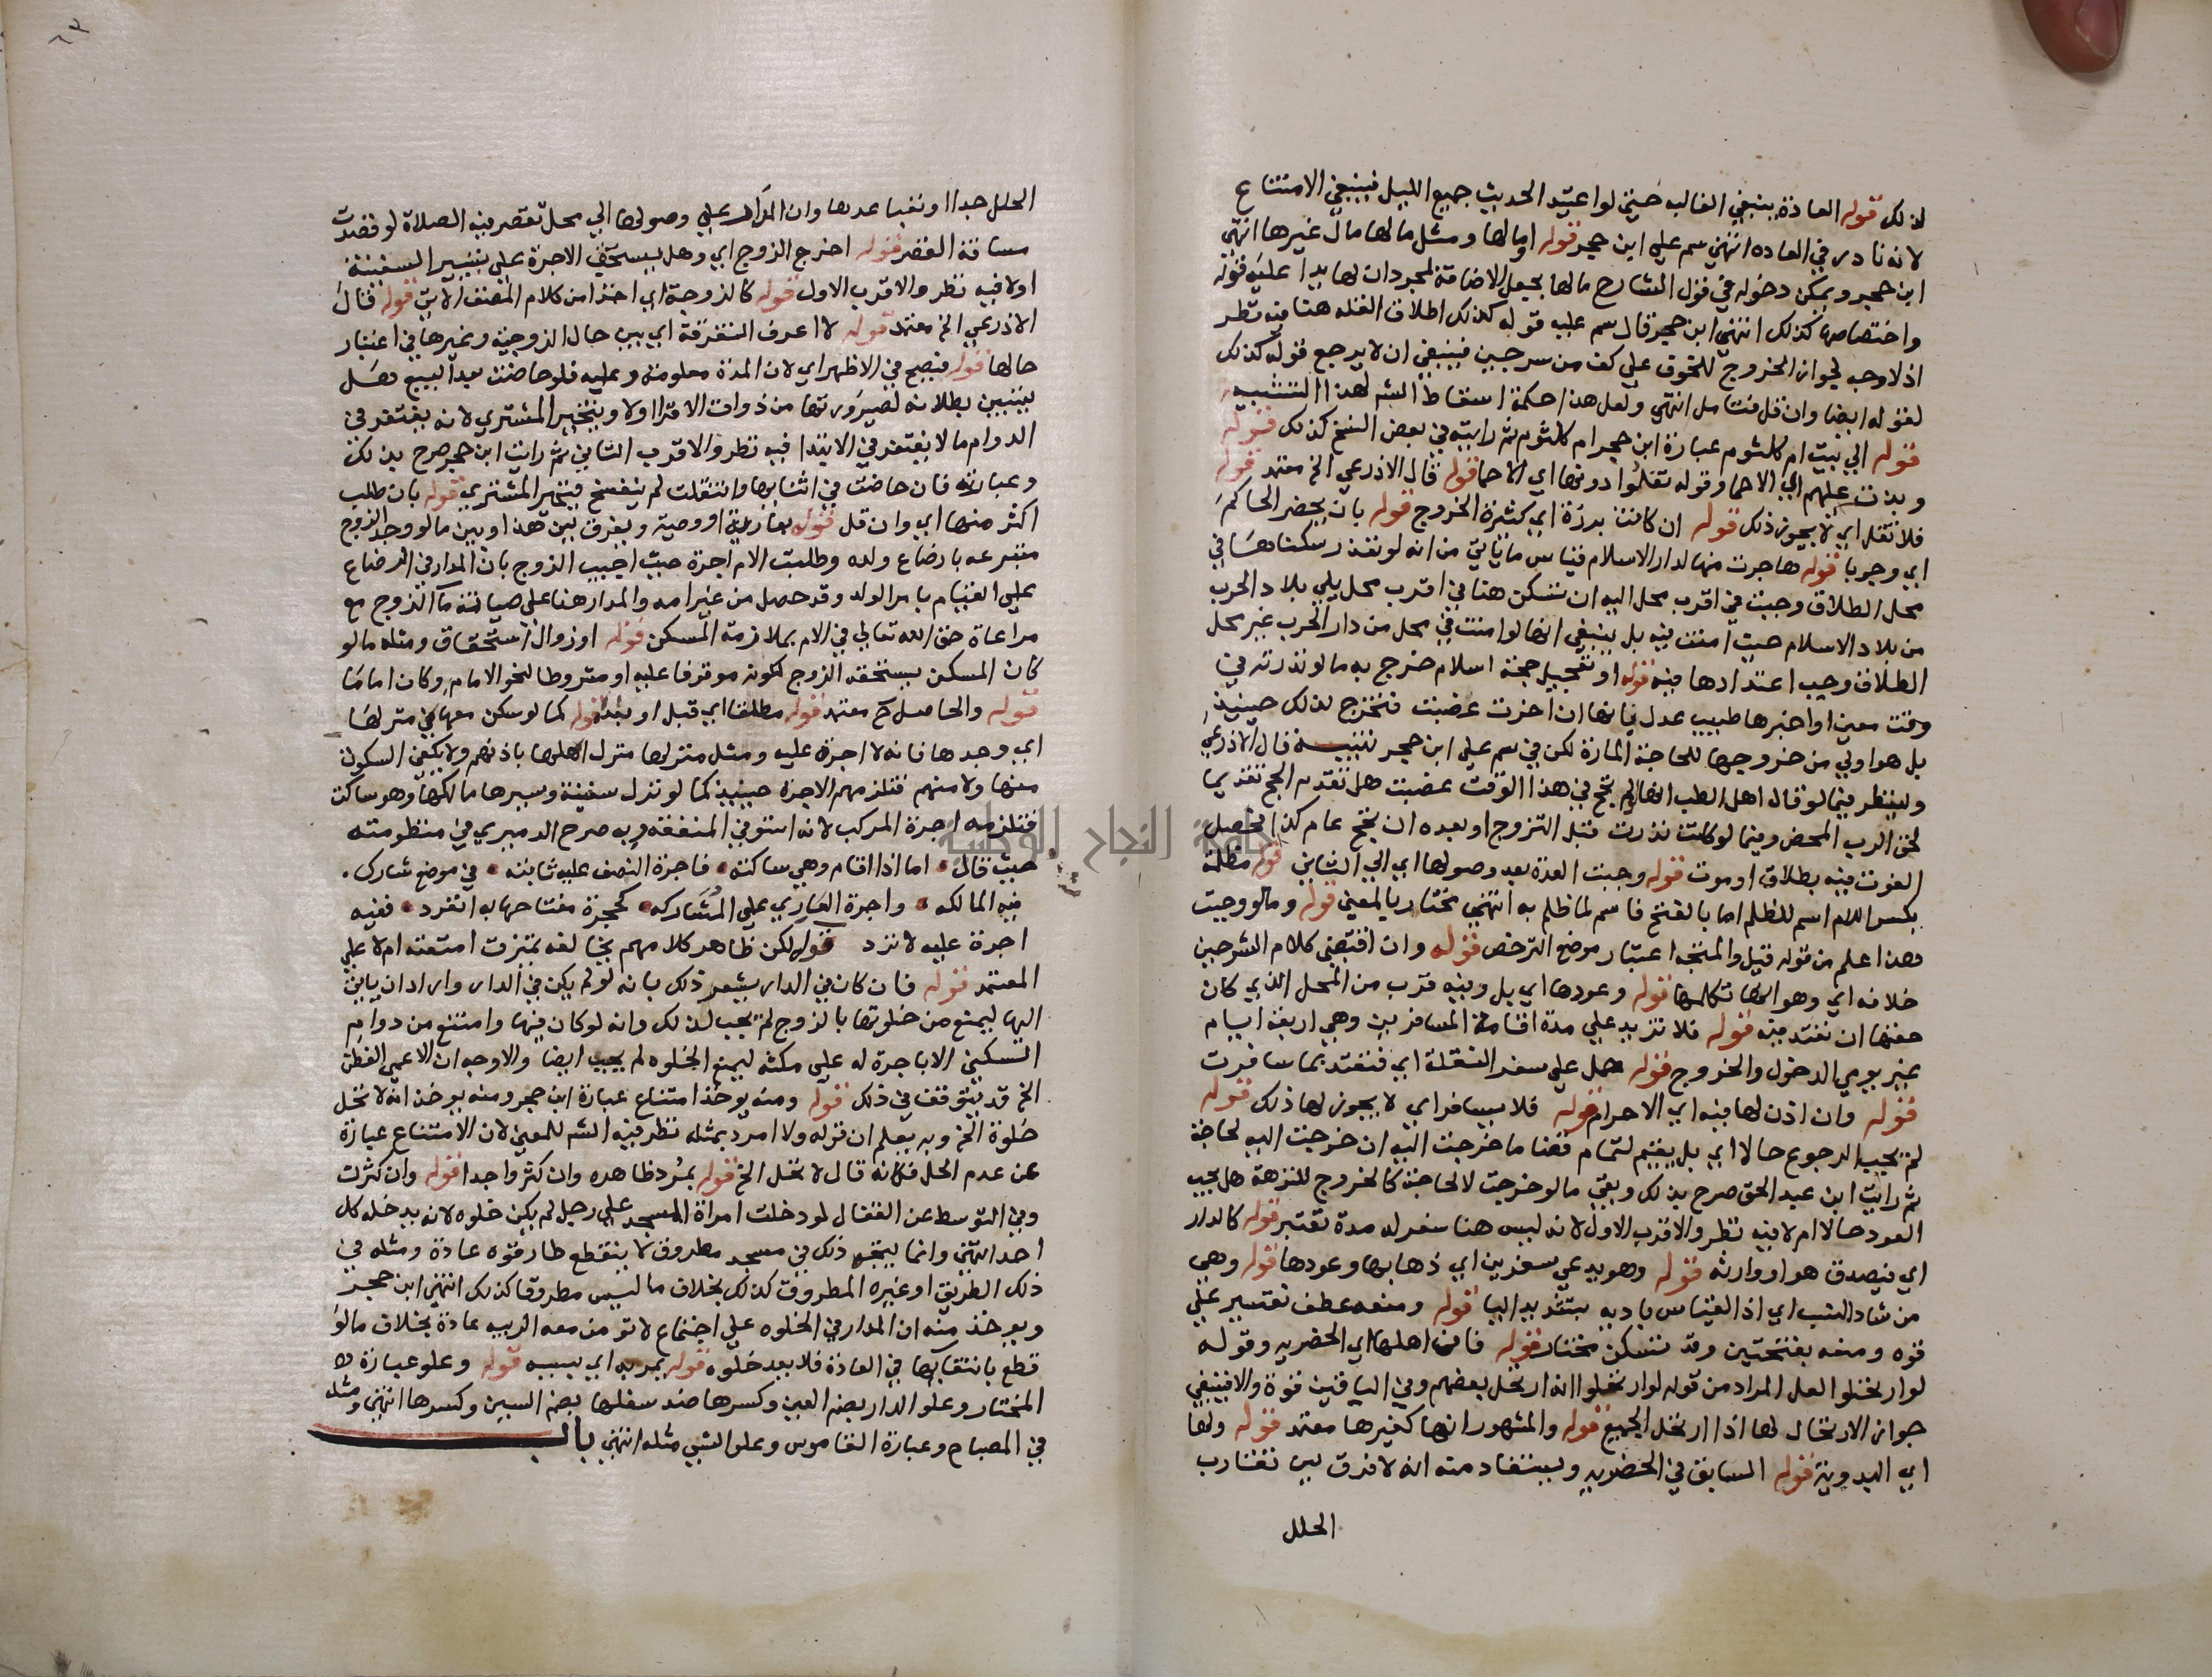 لذلك قوله العادة ينبغي الغالبه حتى لو اعتيد الحديث جميع الليل فينبغي الامتناع
لانه نادر في العاده انتهى سم علي ابن حجر قوله اومالها ومثل مالها مال غيرها انتهى
ابن حجر ويمكن دخوله في قول الشارح مالها بجعل الاضافة لمجرد ان لها يدا عليه قوله
واختصاصها كذلك انتهى ابن حجر قال سم عليه قوله كذلك اطلاق النقله هنا فيه نظر
اذ لا وجه لجواز الخروج للخوف علي كف من سرجين فينبغي ان لا يرجع قوله كذلك
لقوله ايضا وان قل فتامل انتهى ولعل هذا حكمة اسقاط الشم لهذا التشبيه
قوله الي بيت ام كلثوم عبارة ابن حجر ام كلثوم ثم رايته في بعض النسخ كذلك قوله
وبذت عليهم اي الاحما وقوله نقلوا دونها اي الاحما قوله قال الاذرعي الخ معتمد قوله
فلا نقل اي لا يجوز ذلك قوله ان كانت برزة اي كثيرة الخروج قوله بان يحضر الحاكم
اي وجوبا قوله هاجرت منها لدار الاسلام قياس ما ياتي من انه لو تعذر سكناها في
محل الطلاق وجبت في اقرب محل اليه ان تسكن هنا في اقرب محل يلي بلاد الحرب
من بلاد الاسلام حيث امنت فيه بل ينبغي انها لو امنت في محل من دار الحرب غير محل
الطلاق وجب اعتدادها فيه قوله او تعجيل حجة اسلام خرج به ما لو نذرته في
وقت معين او اخبرها طبيب عدل بانها ان اخرت عضبت فتخرج لذلك حينيذ
بل هو اولي من خروجها للحاجة المارة لكن في سم علي ابن حجر تنبيه قال الاذرعي
ولينظر فيما لو قال اهل الطب انها ان لم تحج في هذا الوقت عضبت هل تقدم الحج تقديما
لحق الرب المحض وفيما لو كانت نذرت قبل التزوج او بعده ان تحج عام كذا فحصل
الفوت فيه بطلاق او موت قوله وجبت العدة بعد وصولها اي الي الثاني قوله مظلمة
بكسر اللام اسم للظلم اما بالفتح فاسم لما ظلم به انتهى مختار بالمعنى قوله وما لو وجبت
هذا علم من قوله قبل والمتجه اعتبار موضع الترخص قوله وان اقتضي كلام الشرحين
خلافه اي وهو انها تكلها قوله وعودها اي بل وفيه قرب من المحل الذي كان
حقها ان تعتد فيه قوله فلا تزيد علي مدة اقامة المسافرين وهي اربعة ايام
غير يومي الدخول والخروج قوله حمل علي سفر النقلة اي فتعتد بما سافرت
قوله وان اذن لها فيه اي الاحرام قوله فلا يسافر اي لا يجوز لها ذلك قوله
لم يجب الرجوع حالا اي بل يغتنم لتمام قضا ما خرجت اليه ان خرجت اليه لحاجة
ثم رايت ابن عبد الحق صرح بذلك وبقي ما لو خرجت لا لحاجة كالخروج للنزهة هل يجب
العود حالا ام لا فيه نظر والاقرب الاول لانه ليس هنا سفر له مدة تعتبر قوله كالدار
اي فيصدق هو او وارثه قوله وهو يدعي سفرين اي ذهابها وعودها قوله وهي
من شاذ النسب اي اذ القياس بادية بتشديد اليا قوله ومنعه عطف تفسير علي
قوه ومنعه بفتحتين وقد تسكن مختار قوله فان اهلها اي الحضريه وقوله
لو ارتحلوا لعل المراد من قوله لو ارتحلوا انه ارتحل بعضهم وفي الباقين قوة والا فينبغي
جواز الارتحال لها اذا ارتحل الجميع قوله والمشهور انها كغيرها معتمد قوله ولها
اي البدوية قوله السابق في الحضرية ويستفاد منه انه لا فرق بين تقارب
الحلل
الحلل جدا او تباعدها وان المدار علي وصولها الي محل تقصر فيه الصلاة لو قصدت
مسافة القصر قوله اخرج الزوج اي وهل يستحق الاجرة علي تسيير السفينة
اولا فيه نظر والاقرب الاول قوله كالزوجة اي اخذا من كلام المصنف الاتي قوله قال
الاذرعي الخ معتمد قوله لا اعرف التفرقة اي بين حال الزوجية وغيرها في اعتبار
حالها قوله فيصح في الاظهر اي لان المدة معلومة وعليه فلو حاضت بعد البيع فهل
يتبين بطلانه لصيرورتها من ذوات الاقرا اولا ويتخير المشتري لانه يغتفر في
الدوام ما لا يغتفر في الابتدا فيه نظر والاقرب الثاني ثم رايت ابن حجر صرح بذلك
وعبارته فان حاضت في اثنايها وانتقلت لم ينفسخ فيتخير المشتري قوله بان طلب
اكثر منها اي وان قل قوله بعارية او وصية ويفرق بين هذا وبين ما لو وجد الزوج
متبرعه بارضاع ولده وطلبت الام اجرة حيث اجيب الزوج بان المدار في الرضاع
علي القيام بامر الولد وقد حصل من غير امه والمدار هنا علي صيانة ما الزوج مع
مراعاة حق الله تعالي في الام بملازمة المسكن قوله او زوال استحقاق ومثله ما لو
كان المسكن يستحقه الزوج لكونه موقوفا عليه او مشروطا لنحو الامام وكان اماما
قوله والحاصل ح معتمد قوله مطلقا اي قبل او بعد قوله كما لو سكن معها في منزلها
اي وحدها فانه لا اجرة عليه ومثل منزلها منزل اهلها باذنهم ولا يكفي السكوت
منها ولا منهم فتلزمهم الاجرة حينيذ كما لو نزل سفينة وسيرها مالكها وهو ساكت
فتلزمه اجرة المركب لانه استوفي المنفعة وبه صرح الدميري في منظومته
حيث قال اما اذا اقام وهي ساكته فاجرة النصف عليه ثابته في موضع شارك
فيه المالكه واجرة العاري علي المشاركه كحجرة مفتاحها به انفرد ففيه
اجرة عليه لا ترد قوله لكن ظاهر كلامهم يخالفه تميزت امتعته ام لا علي
المعتمد قوله فان كان في الدار يشعر ذلك بانه لو لم يكن في الدار واراد ان ياتي
اليها ليمنع من خلوتها بالزوج لم يجب لذلك وانه لو كان فيها وامتنع من دوام
السكني الا باجرة له علي مكثه ليمنع الخلوه لم يجب ايضا والاوجه ان الاعمي الفطن
الخ قد يتوقف في ذلك قوله ومنه يوخذ امتناع عبارة ابن حجر ومنه يوخذ انه لا تحل
خلوة الخ وبه يعلم ان قوله ولا امرد بمثله نظر فيه الشم للمعنى لان الامتناع عبارة
عن عدم الحل فكانه قال لا تحل الخ قوله بمرد ظاهره وان كثروا جدا قوله وان كثرت
وفي التوسط عن القفال لو دخلت امراة المسجد علي رجل لم يكن خلوه لانه يدخله كل
احد انتهى وانما يتجه ذلك في مسجد مطروق لا ينقطع طارقوه عادة ومثله في
ذلك الطريق او غيره المطروق كذلك بخلاف ما ليس مطروقا كذلك انتهى ابن حجر
ويوخذ منه ان المدار في الخلوه علي اجتماع لا تومن معه الريبه عادة بخلاف ما لو
قطع بانتفايها في العادة فلا يعد خلوه قوله بمريد اي بسببه قوله وعلو عبارة
المختار وعلو الدار بضم العين وكسرها ضد سفلها بضم السين وكسرها انتهى ومثله
في المصباح وعبارة القاموس وعلو الشي مثله انتهى باب